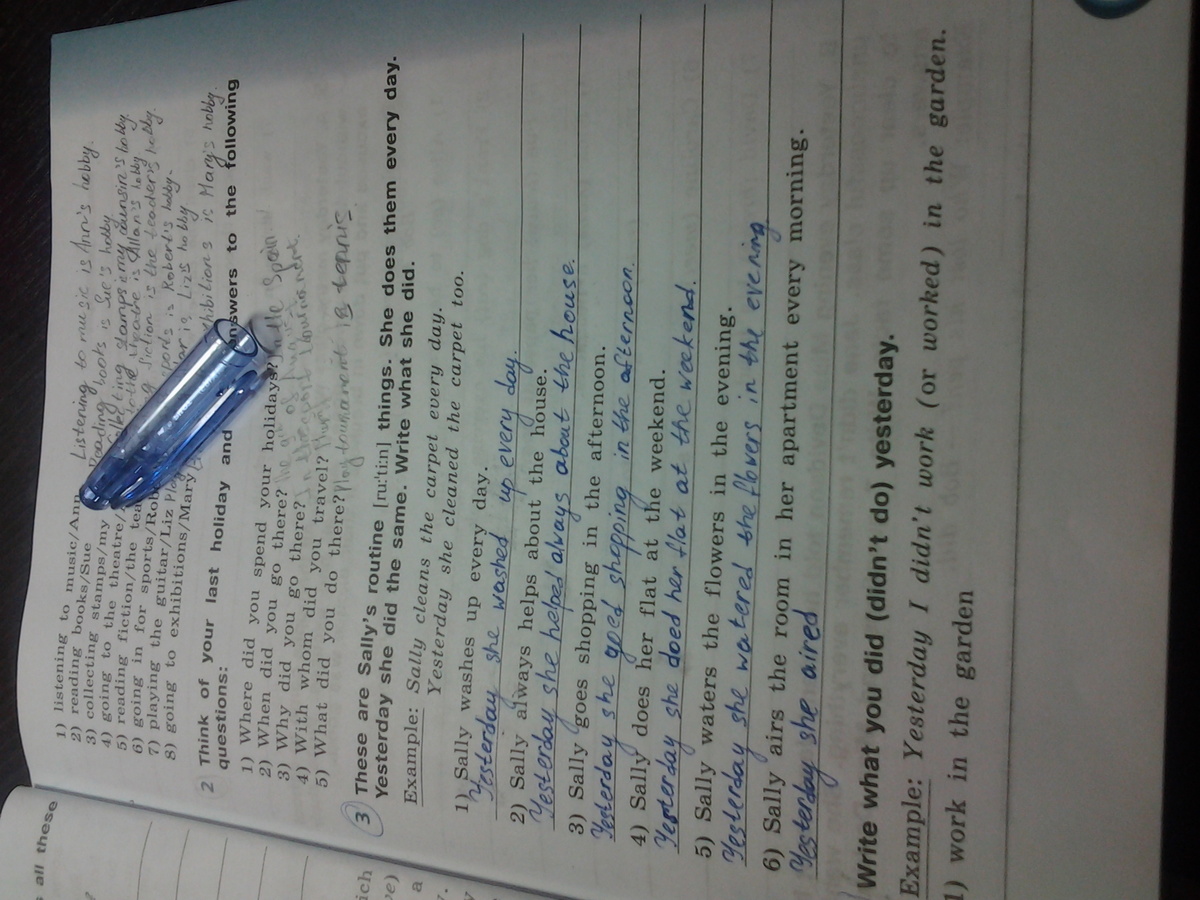 all these
1) listening to music/Ann Listening to music is Ann's hobby.
2) reading books/Sue Reading books is Sue's hobby
3) collecting stamps/my stamps is my cousin's hobby.
4) going to the theatre/ theatre is Allan's hobby
5) reading fiction/the fiction is the teacher's hobby.
6) going in for sports/Rob sports is Robert's hobby.
7) playing the guitar/Liz is Liz's hobby
8) going to exhibitions/Mary exhibitions is Mary's hobby.
2 Think of your last holiday and answers to the following
questions:
1) Where did you spend your holidays? Spain
2) When did you go there?
3) Why did you go there?
4) With whom did you travel?
5) What did you do there? play tournament is tennis.
3 These are Sally's routine [ruːˈtiːn] things. She does them every day.
Yesterday she did the same. Write what she did.
Example: Sally cleans the carpet every day.
Yesterday she cleaned the carpet too.
1) Sally washes up every day.
Yesterday she washed up every day.
2) Sally always helps about the house.
Yesterday she helped always about the house.
3) Sally goes shopping in the afternoon.
Yesterday she goed shopping in the afternoon.
4) Sally does her flat at the weekend.
Yesterday she doed her flat at the weekend.
5) Sally waters the flowers in the evening.
Yesterday she watered the flowers in the evening
6) Sally airs the room in her apartment every morning.
Yesterday she aired
Write what you did (didn't do) yesterday.
Example: Yesterday I didn't work (or worked) in the garden.
1) work in the garden